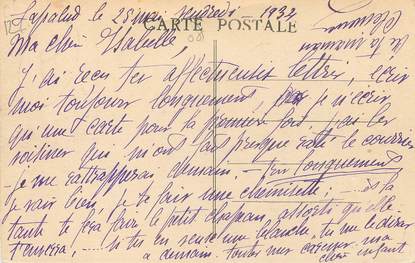 Lapalud le 25 mai mercredi 1932
CARTE POSTALE
Ma chère Isabelle,
J'ai reçu tes affectueuses lettres, écris
moi toujours longuement, je n'écris
qu'une carte pour la première fois, par les
voisines qui m'ont fait presque rater le courrier
je me rattraperai demain. longuement
je vais bien, je te fais une chemisette; et la
tante te fera faire le petit chapeau assorti qu'elle
t'enverra, si tu en veux une blanche, tu me le diras
à demain. toutes mes caresses ma
chère enfant
de ta maman